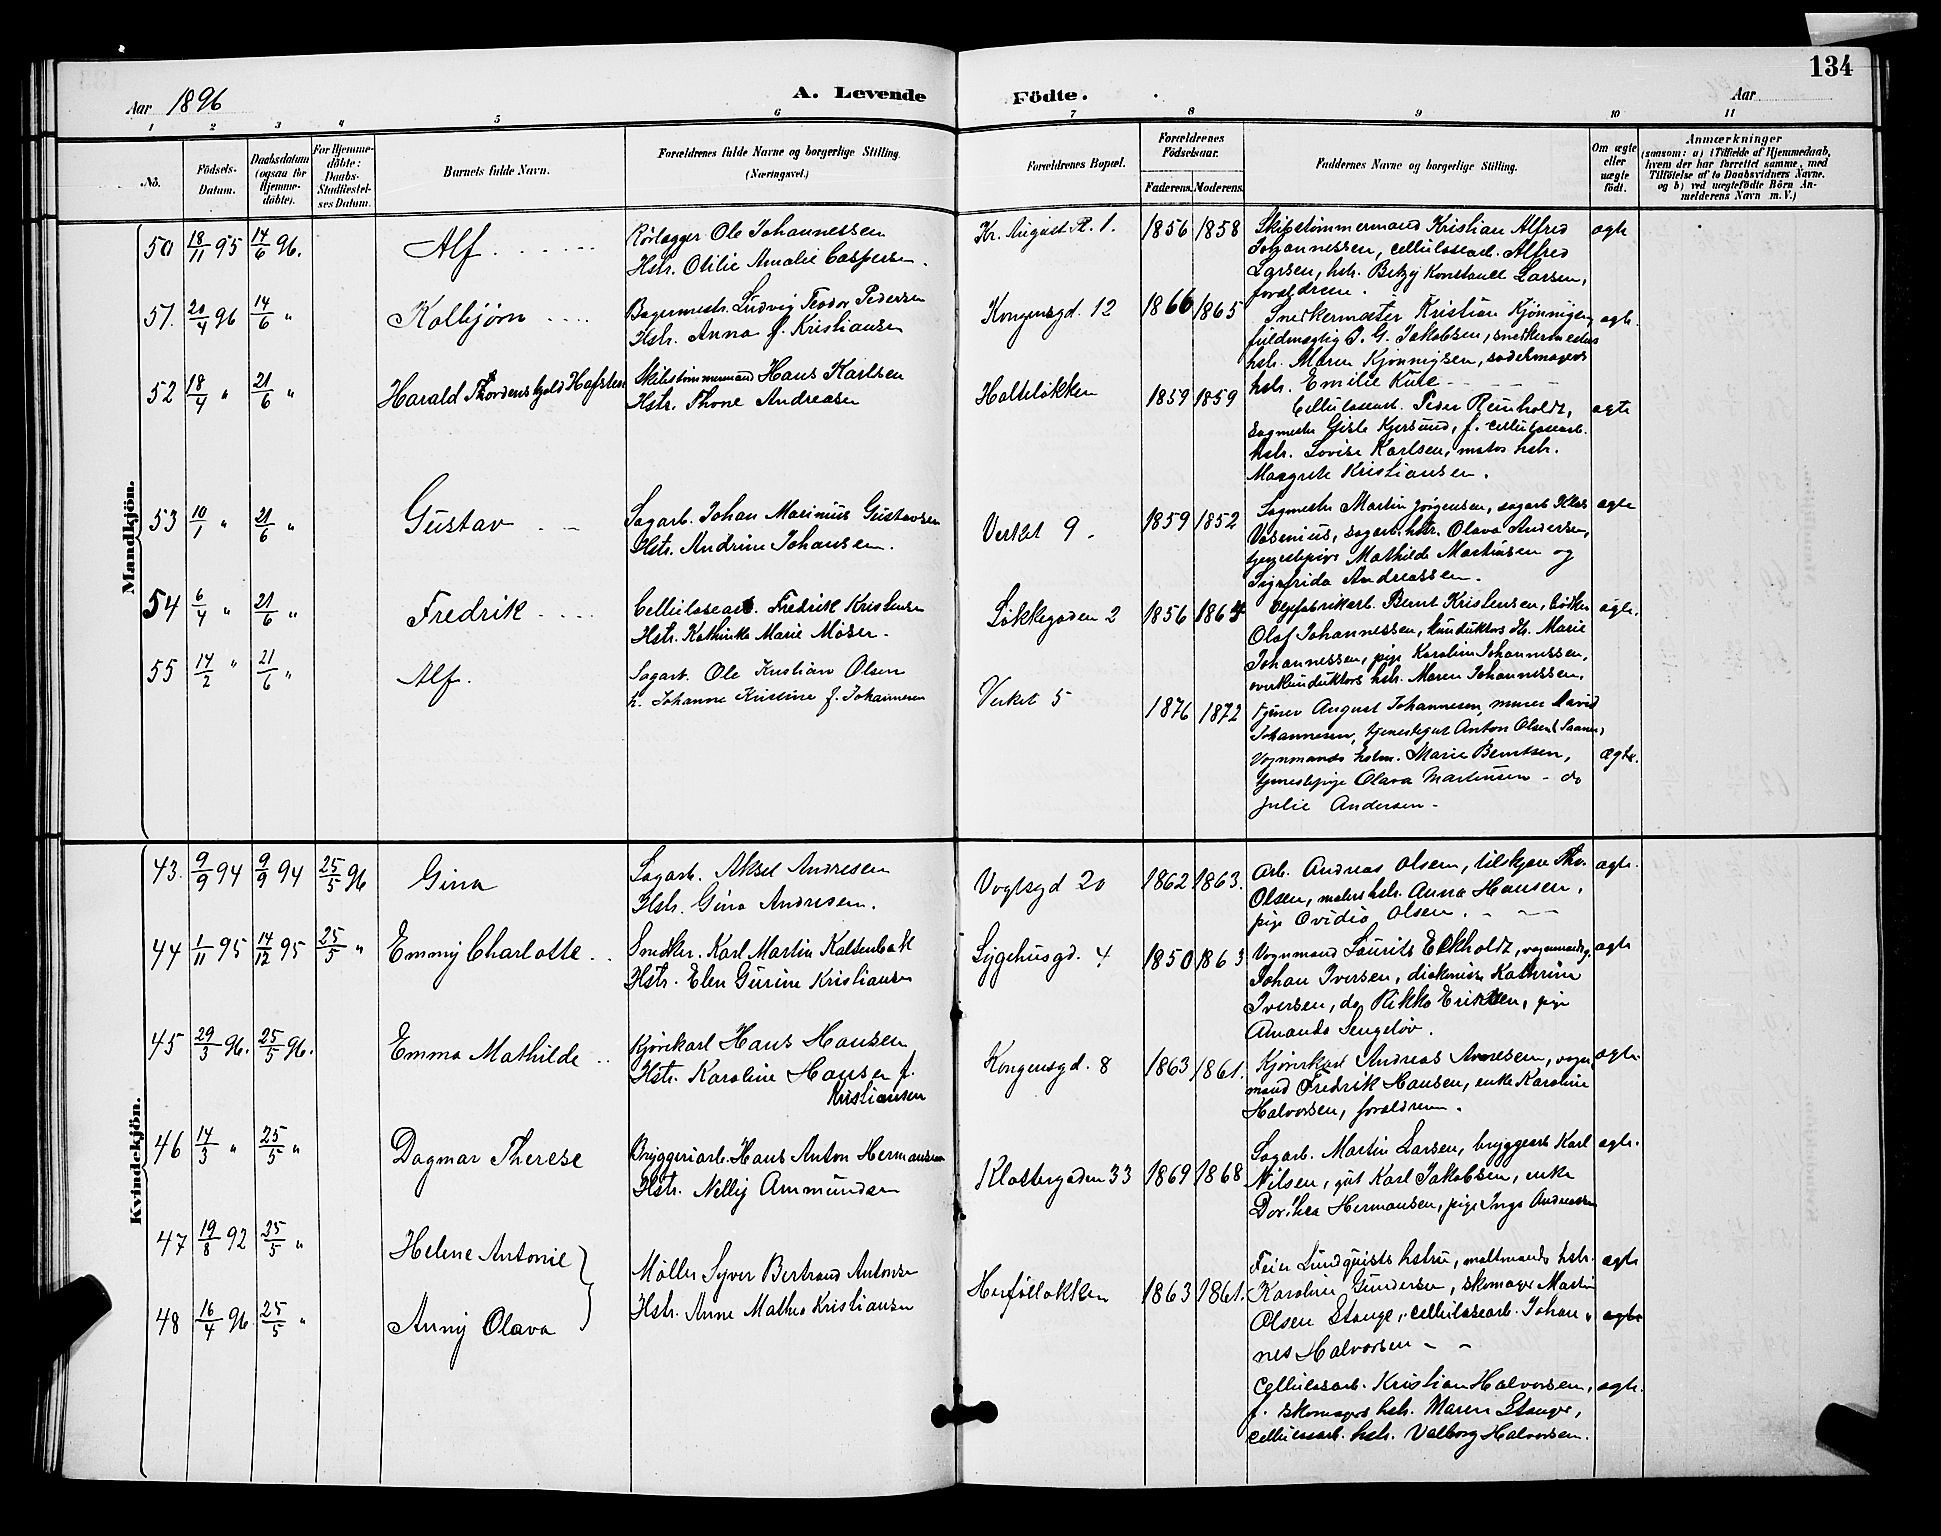 134
Aar 1896
A. Levende
Födte.
Aar
1 2 3 4 5 6 7 8 9 10 11
No.
Födsels-
Datum.
Daabsdatum
(ogsaa for
Hjemme-
döbte).
For Hjemme-
döbte:
Daabs-
Stadfæstel-
ses Datum.
Barnets fulde Navn.
Forældrenes fulde Navne og borgerlige Stilling.
(Næringsvei.)
Forældrenes Bopæl.
Forældrenes
Födselsaar.
Faderens. Moderens.
Faddernes Navne og borgerlige Stilling.
Om ægte
eller
uægte
födt.
Anmærkninger
(saasom: a) i Tilfælde af Hjemmedaab,
hvem der har forrettet samme, med
Tilföielse af to Daabsvidners Navne.
og b) ved uægtefödte Börn An-
melderens Navn m. V.)
Mandkjön.
50 18/11 95 14/6 96. Alf
Rörlægger Ole Johannessen
Hstr. Otilie Amalie Caspersen.
Kr. August Pl. 1. 1856 1858
Skibstømmermand Kristian Alfred
Johannessen, cellulosearb. Alfred
Larsen, hstr. Betzy Konstance Larsen,
forældrene.
ægte
51. 20/4 96 14/6 " Kolbjørn
Bagermestr. Ludvig Teodor Pedersen
Hstr. Anna f. Kristiansen
Kongensgd. 12 1866 1865
Snedkermester Kristian Kjønnigsen,
fuldmægtig J. G. Jakobsen, snedkermesters
hstr. Maren Kjønnigsen, sadelmagers
hstr. Emilie Kure
ægte.
52 18/4 " 21/6 " Harald Thordenskjold Hafsten
Skibstømmermand Hans Karlsen
Hstr. Thone Andreasen
Holteløkken 1859 1859
Cellulosearb. Peder Reinholdt,
sagmester Gisle Kjersund, f. cellulosearb.
hstr. Lovise Karlsen, matros hstr.
Margrete Kristiansen.
ægte
53 10/1 " 21/6 " Gustav
Sagarb. Johan Marinius Gustavsen
Hstr. Andrine Johansen.
Verket 9 1859 1852
Sagmestr. Martin Jørgensen, sagarb. Klas
Vasenius, sagarb. hstr. Olava Andersen,
tjenestepige Mathilde Martinsen og
Sigfrida Andreassen.
ægte
54 6/4 " 21/6 " Fredrik
Cellulosearb. Fredrik Kristensen
Hstr. Kathinka Marie Moser.
Løkkegaden 2 1856 1864
Oljefabrikarb. Bernt Kristensen, bødker
Olaf Johannessen, kunduktørs h. Marie
Johannessen, pige Karoline Johannessen,
overkunduktørs hstr. Maren Johannessen.
ægte.
55 14/2 " 21/6 " Alf.
Sagarb. Ole Kristian Olsen
h. Johanne Kristine f. Johannesen
Verket 5 1876 1872
August Johannesen, murer David
Johannesen, tjenestegut Anton Olsen (Saanes)
Vognmands hstr. Marie Berntsen,
tjenestepige Olava Martinsen - do
Julie Andersen -
Ægte.
Kvindekjön.
43. 9/9 94 9/9 94 25/5 96 Gina
Sagarb. Aksel Andresen
Hstr. Gina Andresen.
Vogtsgd 20 1862 1863.
Arb. Andreas Olsen, tilskjærer Thv.
Olsen, malers hstr. Anna Hansen,
pige Ovidia Olsen.
ægte.
44 1/11 95 14/12 95 25/5 " Emmy Charlotte
Snedker. Karl Martin Kaltenbak
Hstr. Elen Gurine Kristiansen
Sygehusgd. 4 1850 1863
Vognmand Laurits Eckholdt, vognmandsg.
Johan Iversen, diakonisse Kathrine
Iversen, do Rikka Eriksen, pige
Amanda Lengeløv.
ægte
45 29/3 96. 25/5 96. Emma Mathilde
Kjørekarl Hans Hansen
Hstr. Karoline Hansen f.
Kristiansen
Kongensgd. 8 1863 1861.
Kjørekarl Andreas Andresen, vogn
mand Fredrik Hansen, enke Karoline
Halvorsen, forældrene.
ægte
46 14/3 " 25/5 " Dagmar Therese
Bryggeriarb. Hans Anton Hermansen
Hstr. Nelly Ammundsen
Klostergaden 33 1869 1868
Sagarb. Martin Larsen, bryggearb Karl
Nilsen, gut Karl Jakobsen, enke
Dorthea Hermansen, pige Inga Andreassen
ægte.
47 19/8 92 25/5 " Helene Antonie
Møller Syver Bertrand Antonsen
Hstr. Anne Mathea Kristiansen
Herføllokken 1863 1861.
Feier Lundquists hstru, maltmands hstr.
Karoline Gundersen, skomager Martin
Olsen Stange, cellulosearb. Johan
nes Halvorsen
ægte
48 16/4 96 25/5 " Anny Olava
ægte
Cellulosarb. Kristian Halvorsen,
f. skomagers hstr. Maren Stange,
cellulosarb. hstr. Valborg Halvorsen.
ægte.